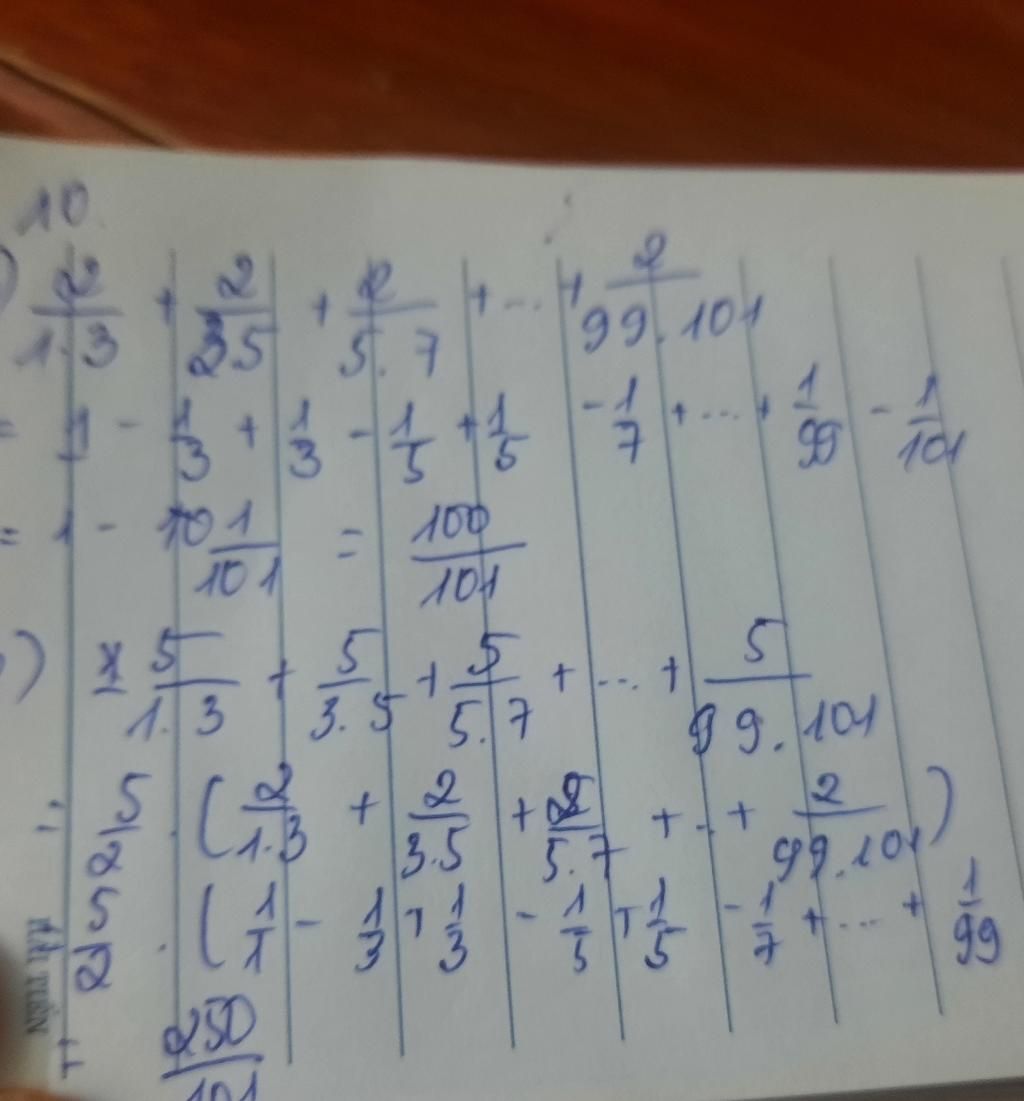 10.
) 2/1.3 + 2/3.5 + 2/5.7 + ... + 2/99.101
= 1/1 - 1/3 + 1/3 - 1/5 + 1/5 - 1/7 + ... + 1/99 - 1/101
= 1 - 1/101 = 100/101
) 5/1.3 + 5/3.5 + 5/5.7 + ... + 5/99.101
= 5/2 . (2/1.3 + 2/3.5 + 2/5.7 + ... + 2/99.101)
= 5/2 . (1/1 - 1/3 + 1/3 - 1/5 + 1/5 - 1/7 + ... + 1/99
= 250/101